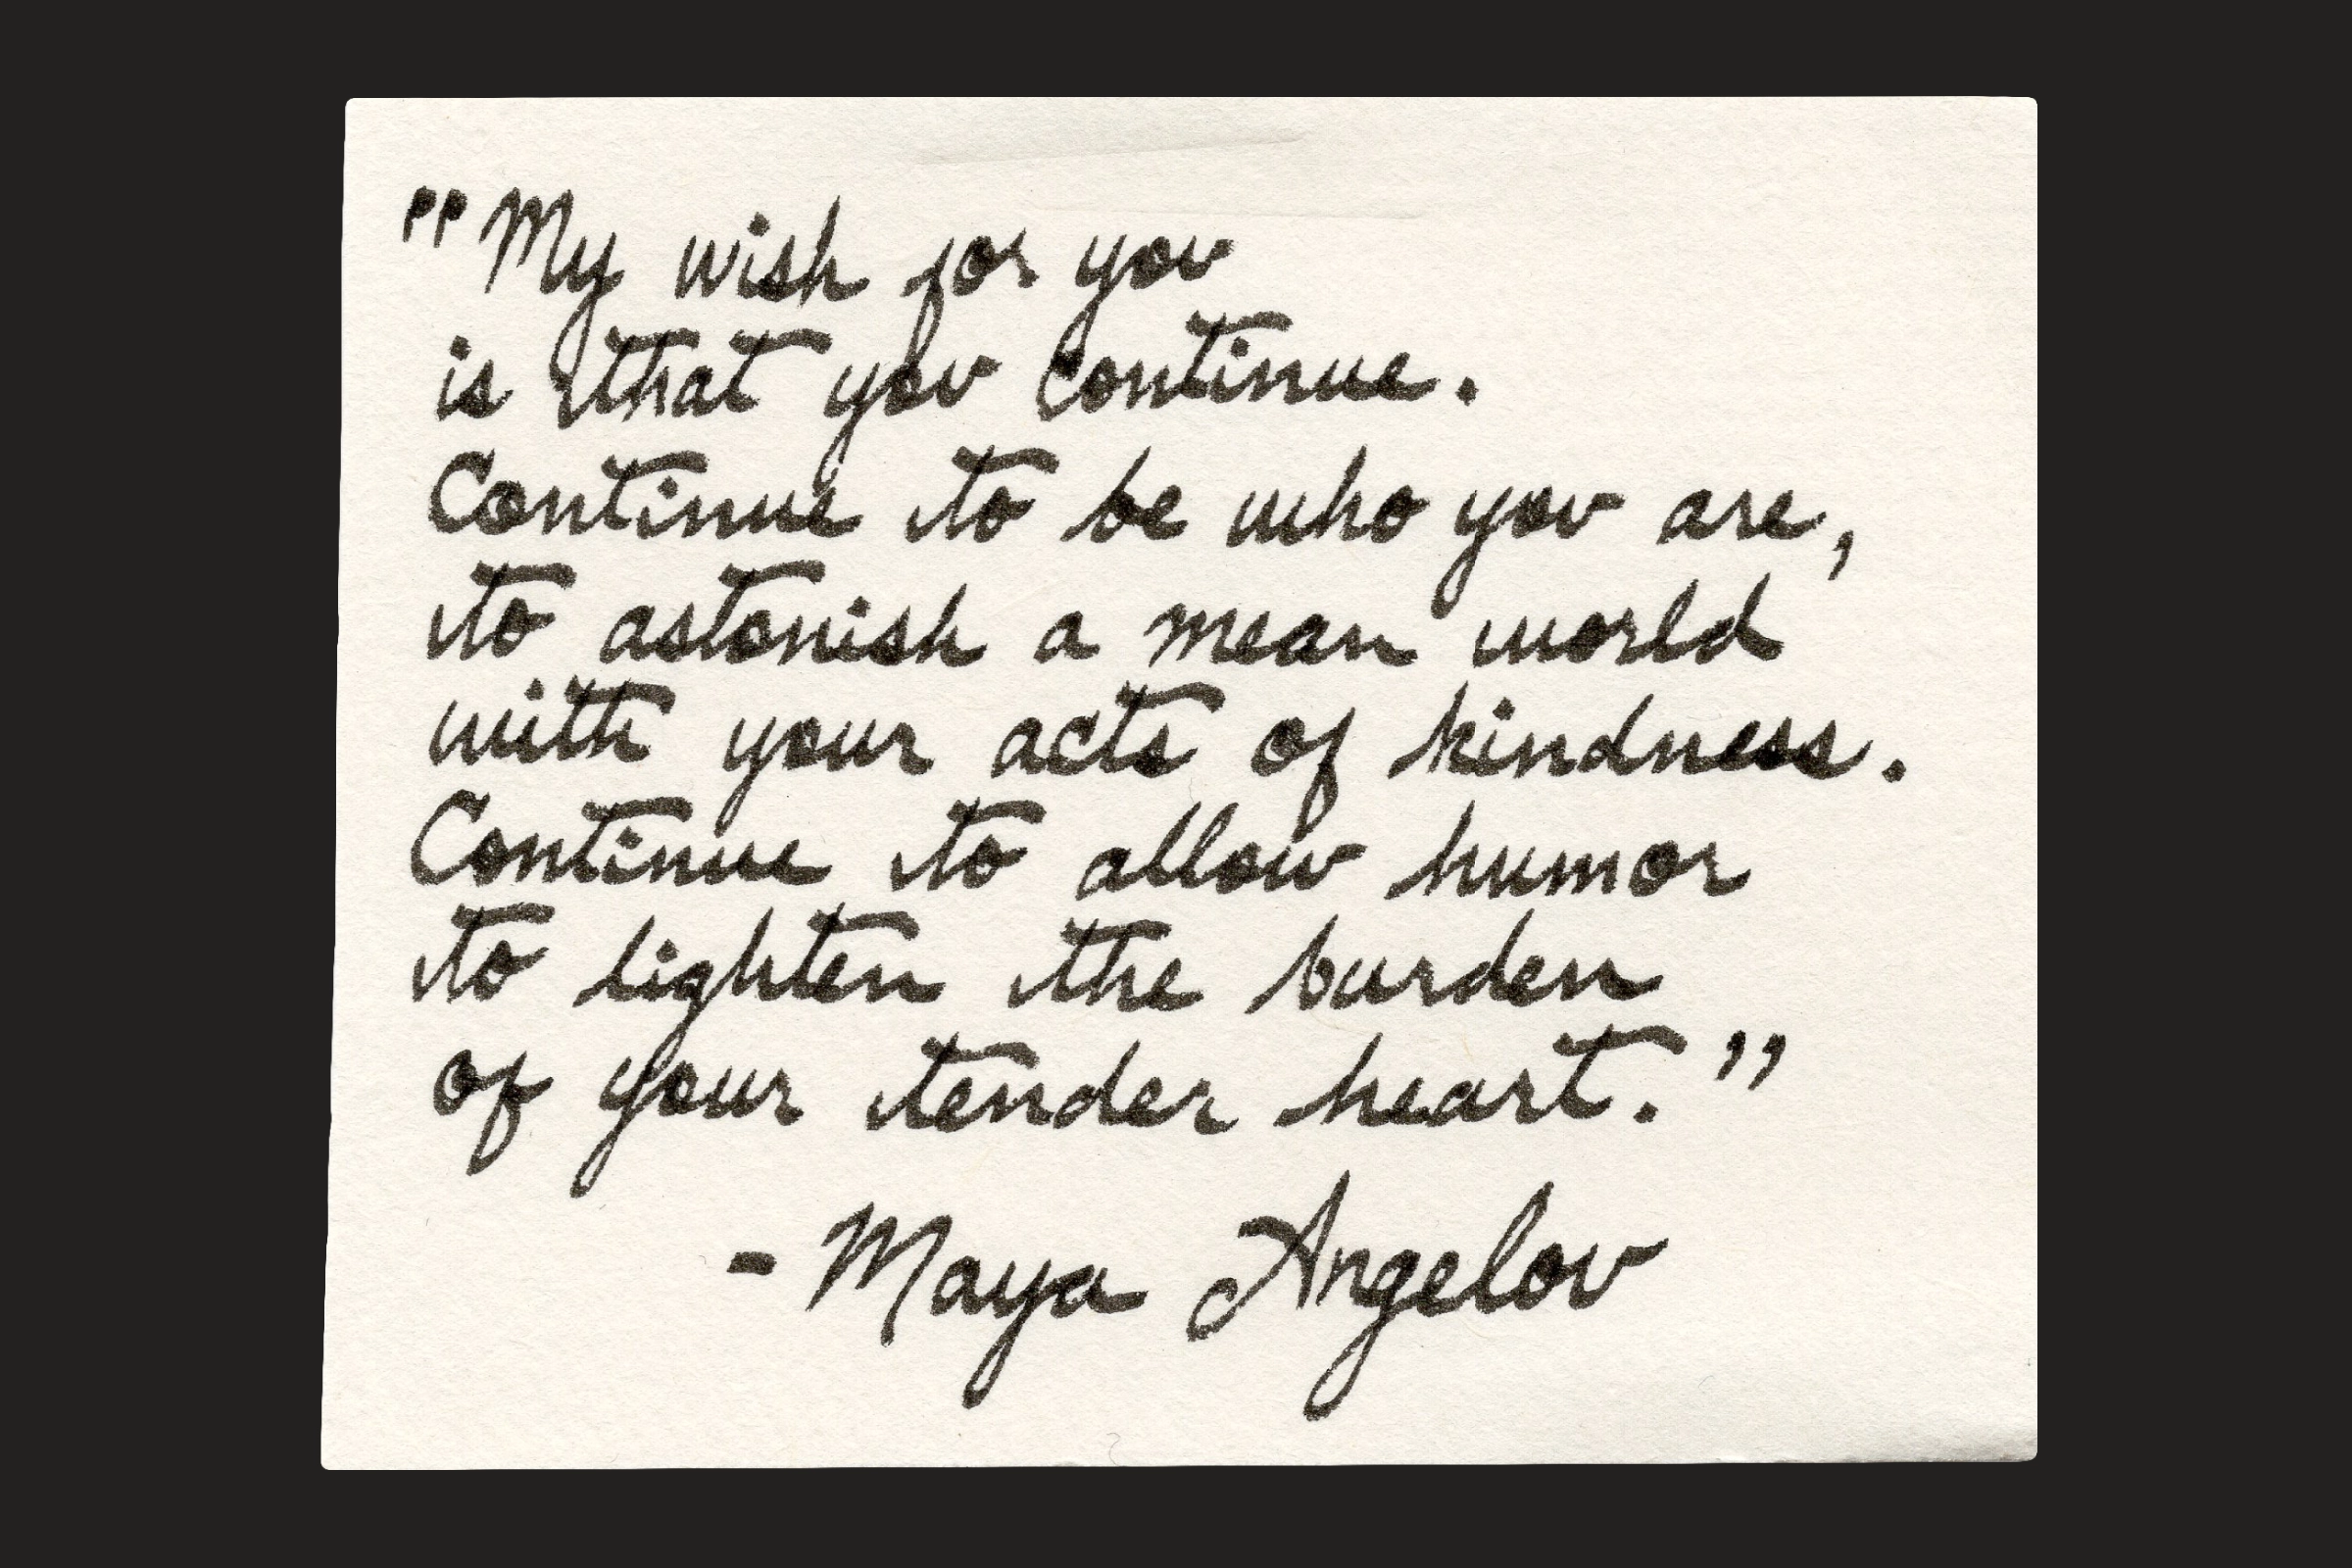 "My wish for you
is that you continue.
Continue to be who you are,
to astonish a mean world
with your acts of kindness.
Continue to allow humor
to lighten the burden
of your tender heart."
- Maya Angelou